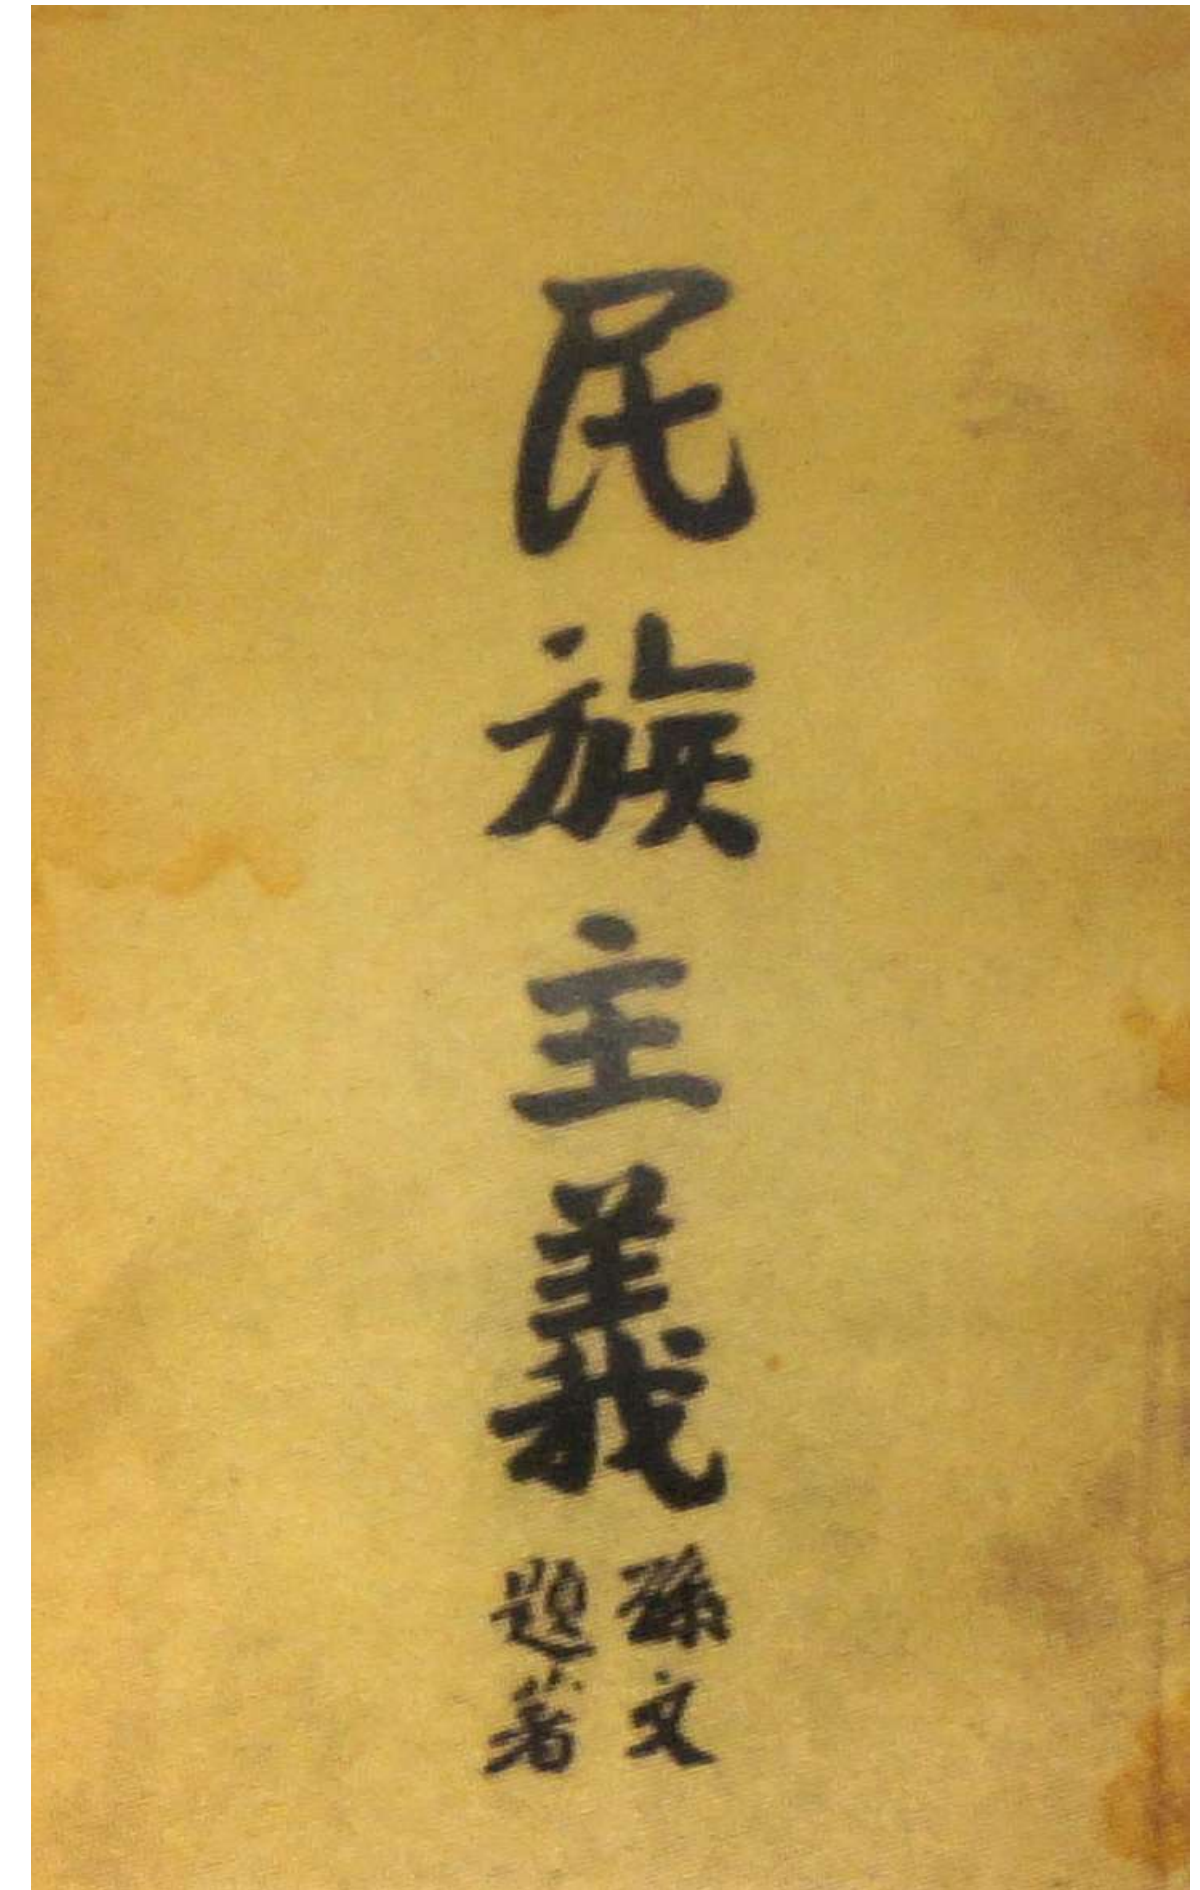 民族主義
孫文
題著